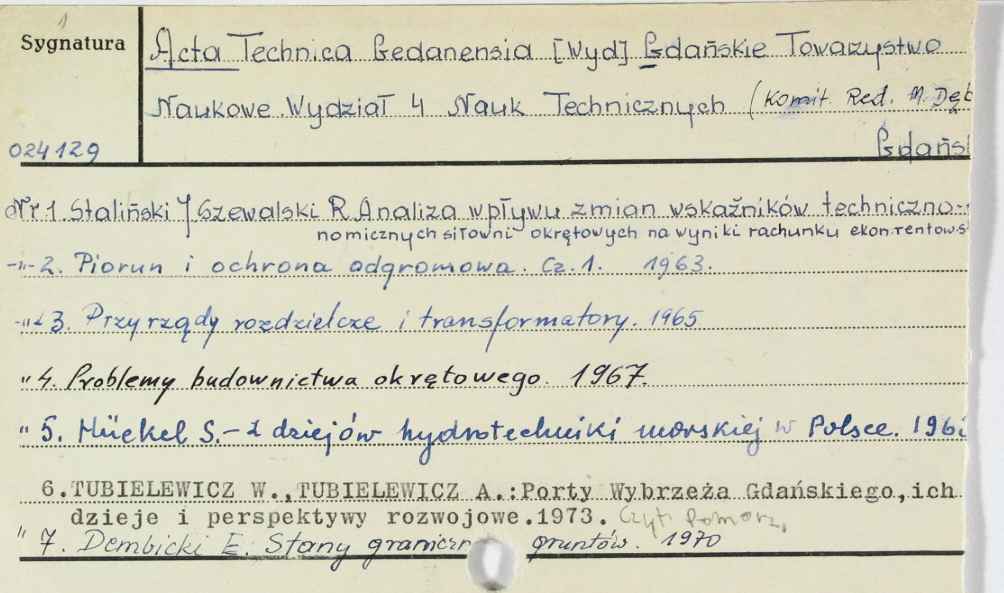 1
Sygnatura
Acta Technica Gedanensia [Wyd] Gdańskie Towarzystwo
Naukowe. Wydział 4 Nauk Technicznych (Komit. Red. M. Dęb
024129
Gdańs
Nr 1. Staliński J Szewalski R. Analiza wpływu zmian wskaźników techniczno-
nomicznych siłowni okrętowych na wyniki rachunku ekon.rentows
-"- 2. Piorun i ochrona odgromowa. Cz. 1. 1963.
-"- 3. Przyrządy rozdzielcze i transformatory. 1965
" 4. Problemy budownictwa okrętowego. 1967.
" 5. Hückel S. – Z dziejów hydrotechniki morskiej w Polsce. 196
6. TUBIELEWICZ W., TUBIELEWICZ A.: Porty Wybrzeża Gdańskiego, ich
dzieje i perspektywy rozwojowe. 1973. Czyt. Pomorz.
" 7. Dembicki E. Stany graniczn gruntów. 1970